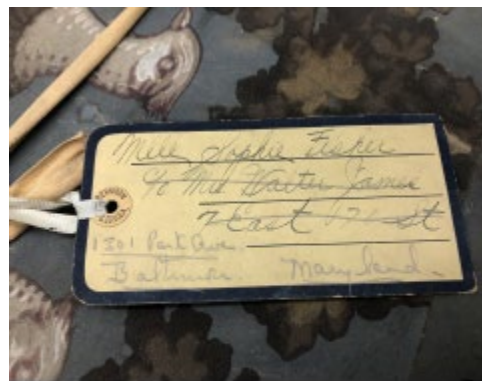 Mlle Sophie Fisher
c/o Mrs Walter James
7 East St
1301 Park Ave
Baltimore Maryland.